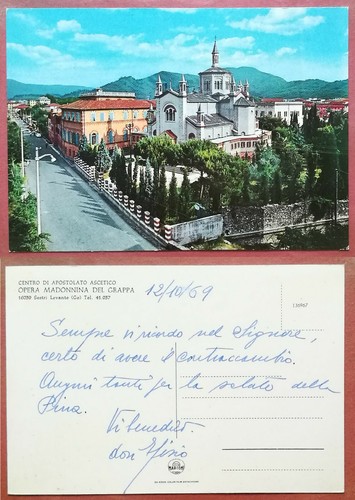 CENTRO DI APOSTOLATO ASCETICO
OPERA MADONNINA DEL GRAPPA
16039 Sestri Levante (Ge) Tel. 41.227
12/10/69
136967
Sempre vi ricordo nel Signore,
certo di avere il contraccambio.
Auguri tanti per la salute della
Pina.
Vi benedico.
don